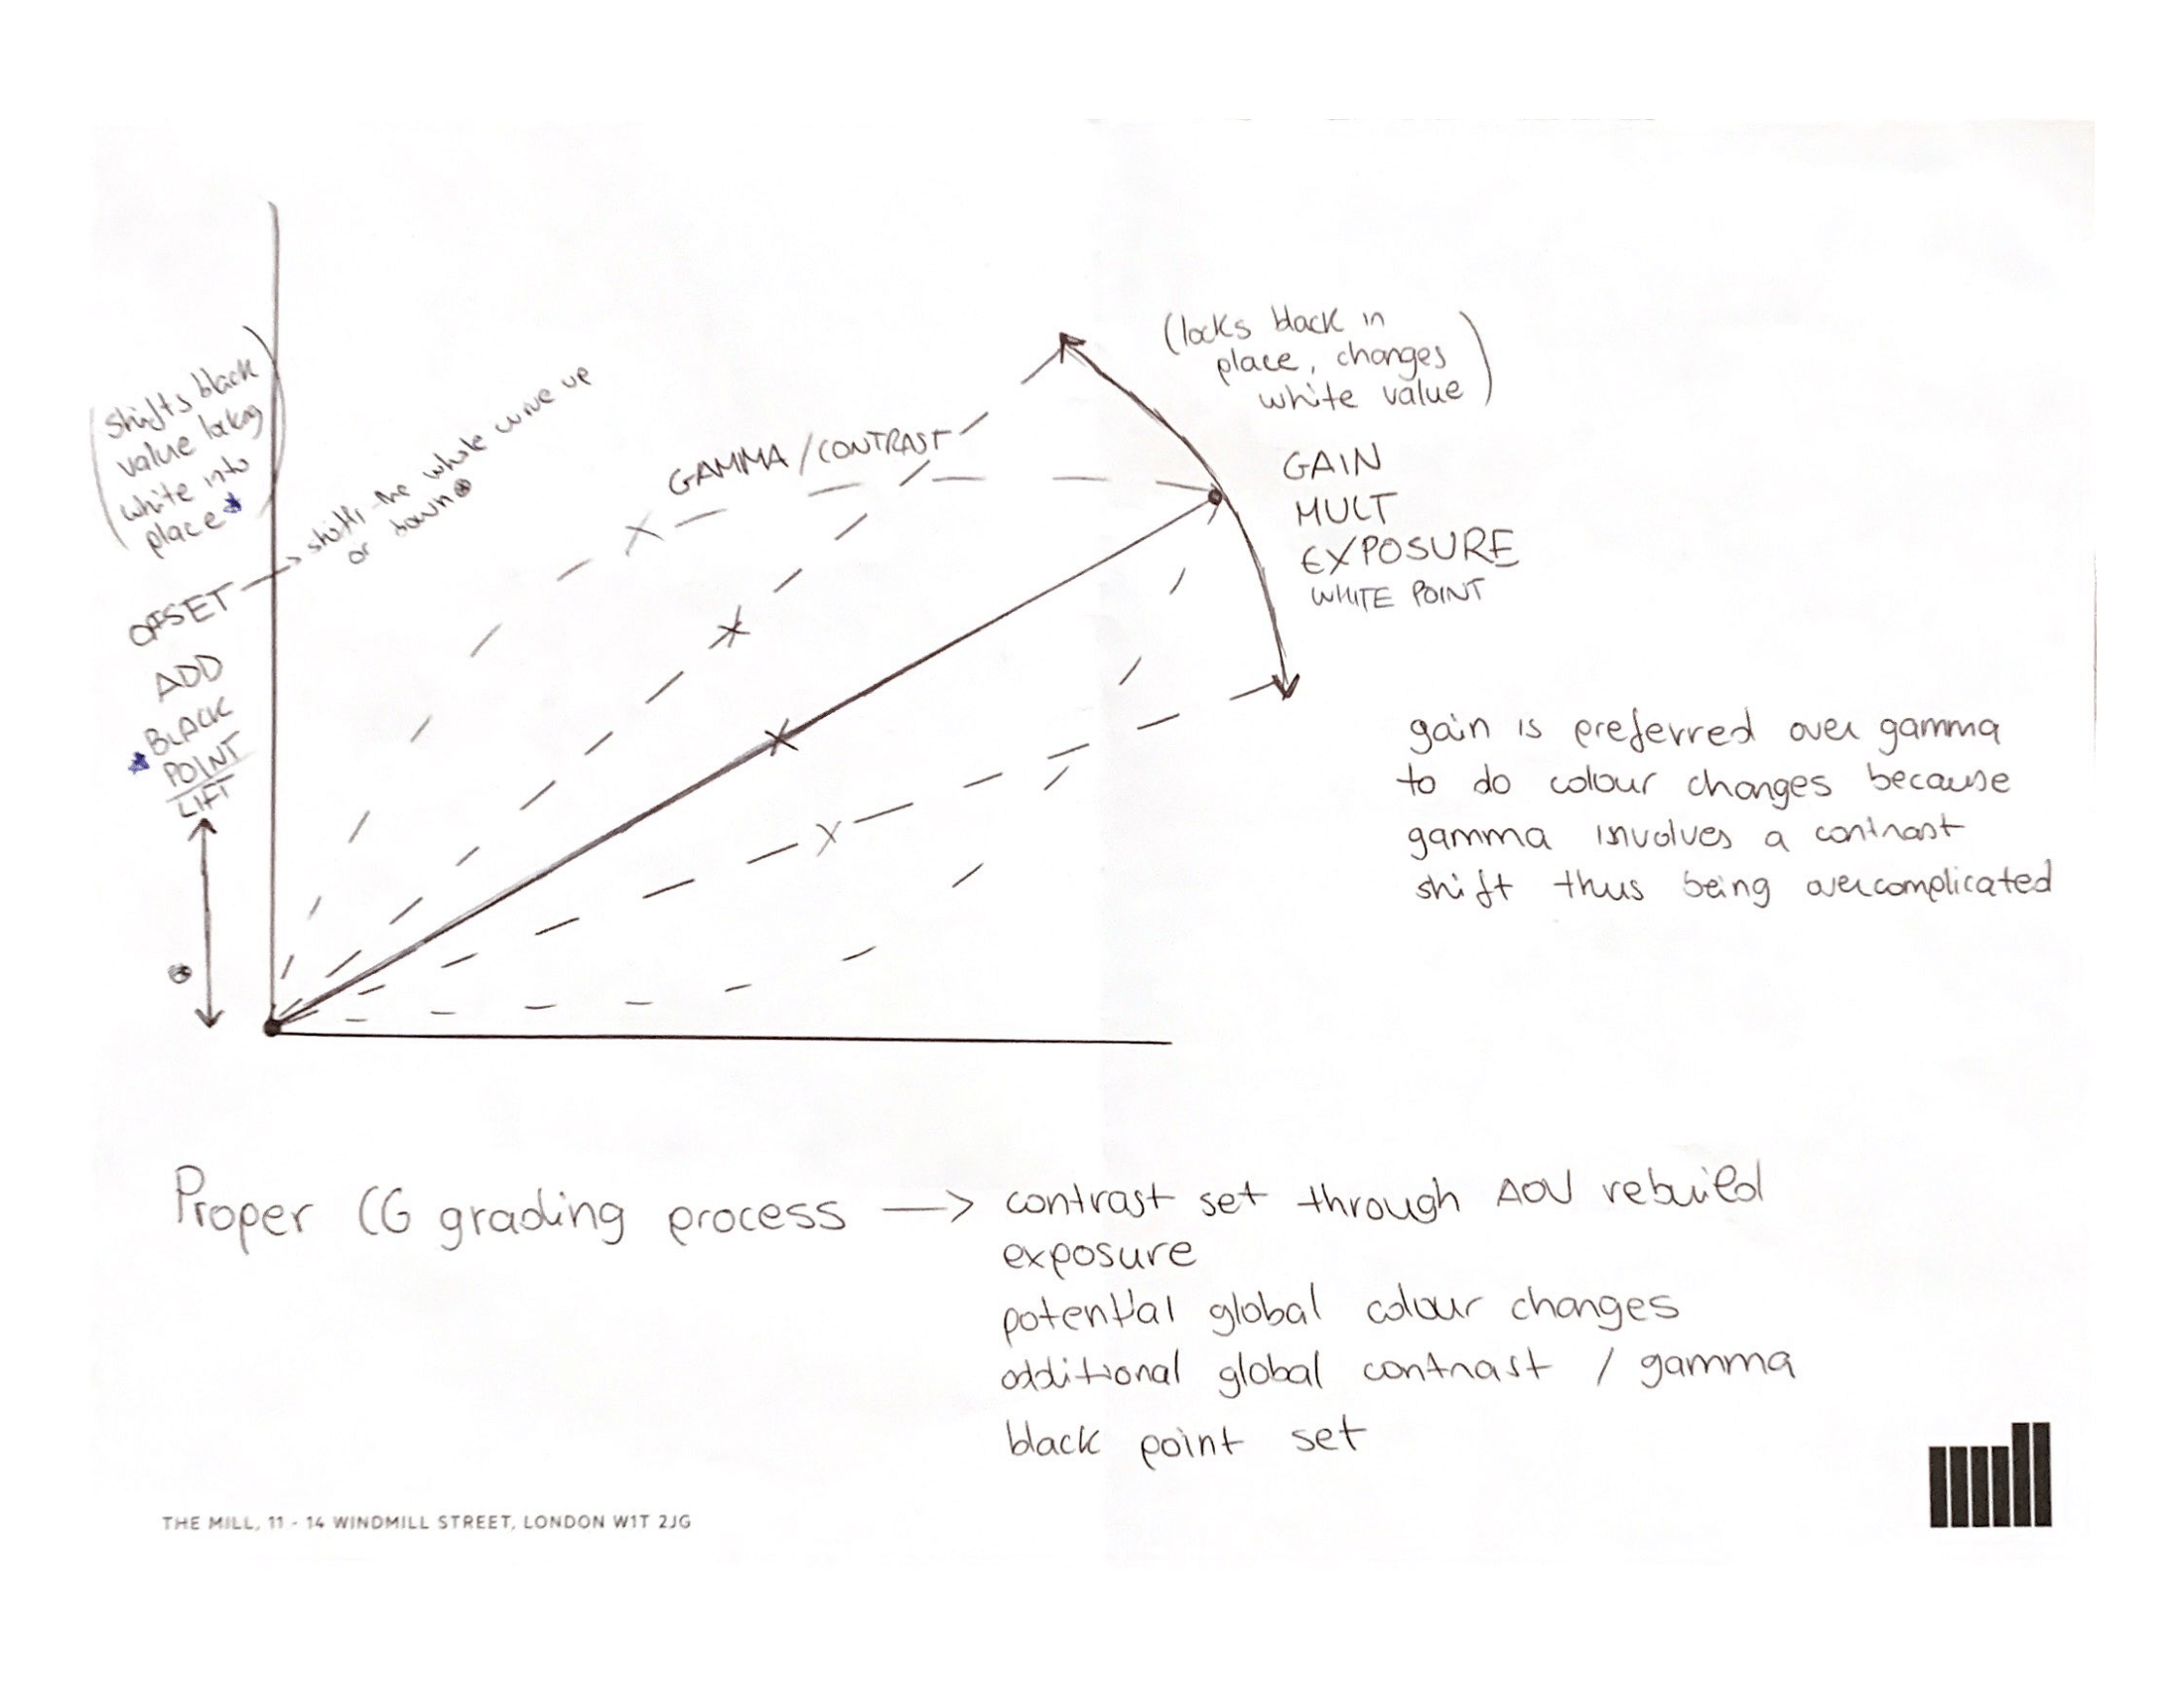 (shifts black
value locking
white into
place★)
OFFSET → shifts the whole curve up
or down⊗
ADD
★ BLACK
POINT
LIFT
⊗
GAMMA / CONTRAST
(locks black in
place, changes
white value)
GAIN
MULT
EXPOSURE
WHITE POINT
gain is preferred over gamma
to do colour changes because
gamma involves a contrast
shift thus being overcomplicated
Proper CG grading process → contrast set through AOV rebuild
exposure
potential global colour changes
additional global contrast / gamma
black point set
THE MILL, 11 - 14 WINDMILL STREET, LONDON W1T 2JG